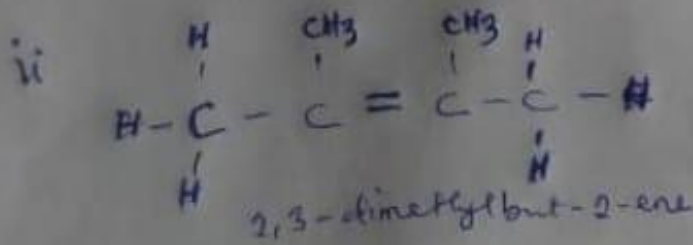 ii
H CH3 CH3 H
H - C - C = C - C - H
H H
2,3-dimethylbut-2-ene